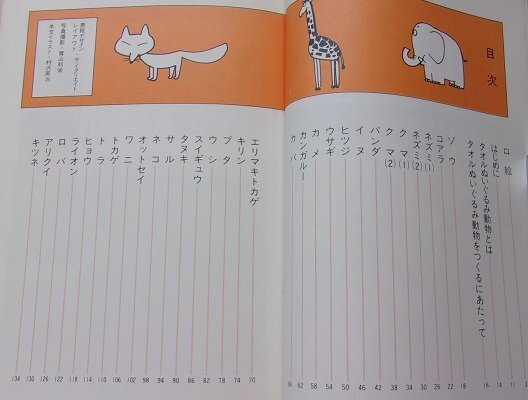 目次
口絵 3
はじめに 11
タオルぬいぐるみ動物とは 14
タオルぬいぐるみ動物をつくるにあたって 16
ゾウ 18
コアラ 22
ネズミ(1) 26
ネズミ(2) 30
クマ(1) 34
クマ(2) 38
パンダ 42
イヌ 46
ヒツジ 50
ウサギ 54
カメ 58
カンガルー 62
カバ 66
表紙デザイン
レイアウト・サンクリエイト
写真撮影・青山利栄
本文イラスト・村沢英治
エリマキトカゲ 70
キリン 74
ブタ 78
ウシ 82
スイギュウ 86
タヌキ 90
サル 94
ネコ 98
オットセイ 102
ワニ 106
トカゲ 110
トラ 114
ヒョウ 118
ライオン 122
ロバ 126
アリクイ 130
キツネ 134